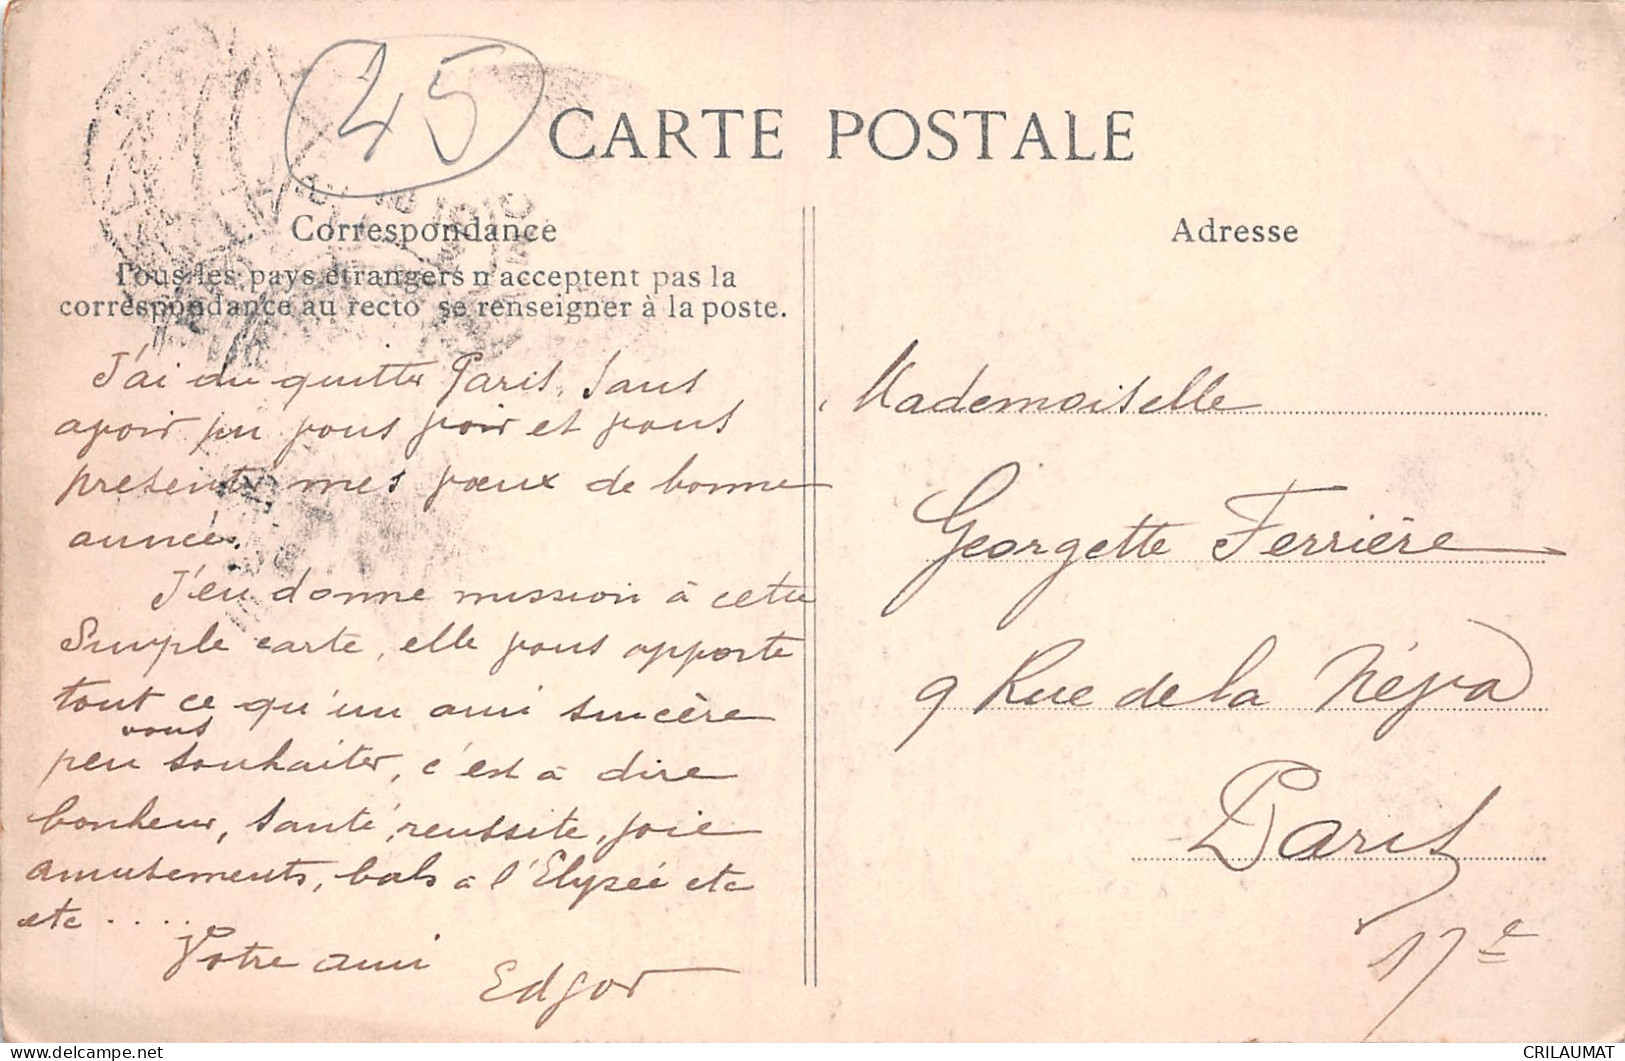 45
CARTE POSTALE
Correspondance
Tous les pays étrangers n'acceptent pas la
correspondance au recto se renseigner à la poste.
J'ai du quitter Paris, sans
avoir pu vous voir et vous
presenter mes vœux de bonne
année.
J'en donne mission à cette
Simple carte, elle vous apporte
tout ce qu'un ami sincère
vous
peu souhaiter, c'est à dire
bonheur, santé, reussite, joie
amusements, bals à l'Elysée etc
etc ....
Votre ami
Edgor
Adresse
Mademoiselle
Georgette Ferrière
9 Rue de la Néva
Paris
17e
CRILAUMAT